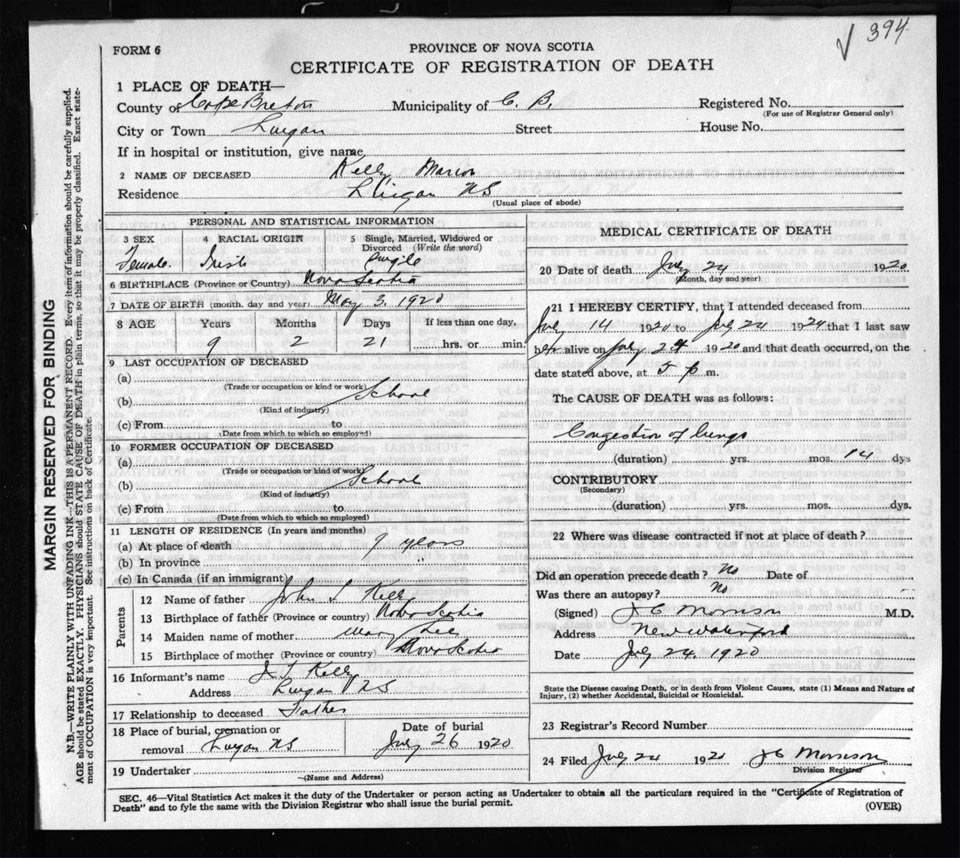 √ 394
FORM 6
PROVINCE OF NOVA SCOTIA
CERTIFICATE OF REGISTRATION OF DEATH
1 PLACE OF DEATH—
County of Cape Breton Municipality of C. B. Registered No.
(For use of Registrar General only)
City or Town Lingan Street House No.
If in hospital or institution, give name
2 NAME OF DECEASED Kelly Marion
Residence Lingan NS
(Usual place of abode)
PERSONAL AND STATISTICAL INFORMATION
3 SEX 4 RACIAL ORIGIN 5 Single, Married, Widowed or Divorced (Write the word)
Female. Irish Single
6 BIRTHPLACE (Province or Country) Nova Scotia
7 DATE OF BIRTH (month, day and year) May 3, 1920
8 AGE Years Months Days If less than one day,
9 2 21 hrs. or min.
9 LAST OCCUPATION OF DECEASED
(a)
(Trade or occupation or kind or work)
(b) School
(Kind of industry)
(c) From to
(Date from which to which so employed)
10 FORMER OCCUPATION OF DECEASED
(a)
(Trade or occupation or kind of work)
(b) School
(Kind of industry)
(c) From to
(Date from which to which so employed)
11 LENGTH OF RESIDENCE (In years and months)
(a) At place of death 9 years
(b) In province "
(c) In Canada (if an immigrant)
Parents
12 Name of father John L Kelly
13 Birthplace of father (Province or country) Nova Scotia
14 Maiden name of mother Mary Lee
15 Birthplace of mother (Province or country) Nova Scotia
16 Informant's name J L Kelly
Address Lingan NS
17 Relationship to deceased Father
18 Place of burial, cremation or removal Lingan NS
Date of burial
July 26 1920
19 Undertaker
(Name and Address)
MEDICAL CERTIFICATE OF DEATH
20 Date of death July 24 1920
(Month, day and year)
21 I HEREBY CERTIFY, that I attended deceased from
July 14 1920 to July 24 1920 that I last saw
her alive on July 24 1920 and that death occurred, on the
date stated above, at 5 p m.
The CAUSE OF DEATH was as follows:
Congestion of lungs
(duration) yrs. mos. 14 dys
CONTRIBUTORY
(Secondary)
(duration) yrs. mos. dys.
22 Where was disease contracted if not at place of death?
Did an operation precede death? No Date of
Was there an autopsy? No
(Signed) J C Morrison M.D.
Address New Waterford
Date July 24, 1920
State the Disease causing Death, or in death from Violent Causes, state (1) Means and Nature of
Injury, (2) whether Accidental, Suicidal or Homicidal.
23 Registrar's Record Number
24 Filed July 24 1920 J C Morrison
Division Registrar
SEC. 46—Vital Statistics Act makes it the duty of the Undertaker or person acting as Undertaker to obtain all the particulars required in the "Certificate of Registration of
Death" and to fyle the same with the Division Registrar who shall issue the burial permit.
(OVER)
MARGIN RESERVED FOR BINDING
N.B.—WRITE PLAINLY WITH UNFADING INK—THIS IS A PERMANENT RECORD. Every item of information should be carefully supplied.
AGE should be stated EXACTLY. PHYSICIANS should STATE CAUSE OF DEATH in plain terms, so that it may be properly classified. Exact statement of OCCUPATION is very important. See instructions on back of Certificate.